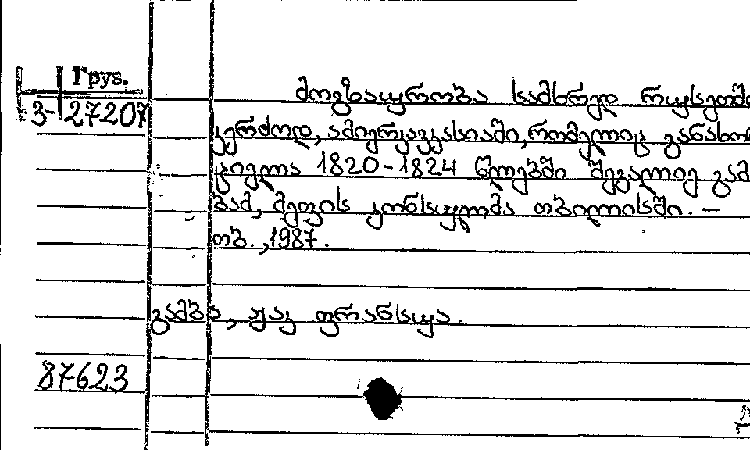 Груз.
3-27207
მოგზაურობა სამხრეთ რუსეთში
კერძოდ, ამიერკავკასიაში, რომელიც განახორ
ციელა 1820-1824 წლებში შევალიე გამ
ბამ, მეფის კონსულმა თბილისში. —
თბ., 1987.
გამბა, ჟაკ ფრანსუა.
87623